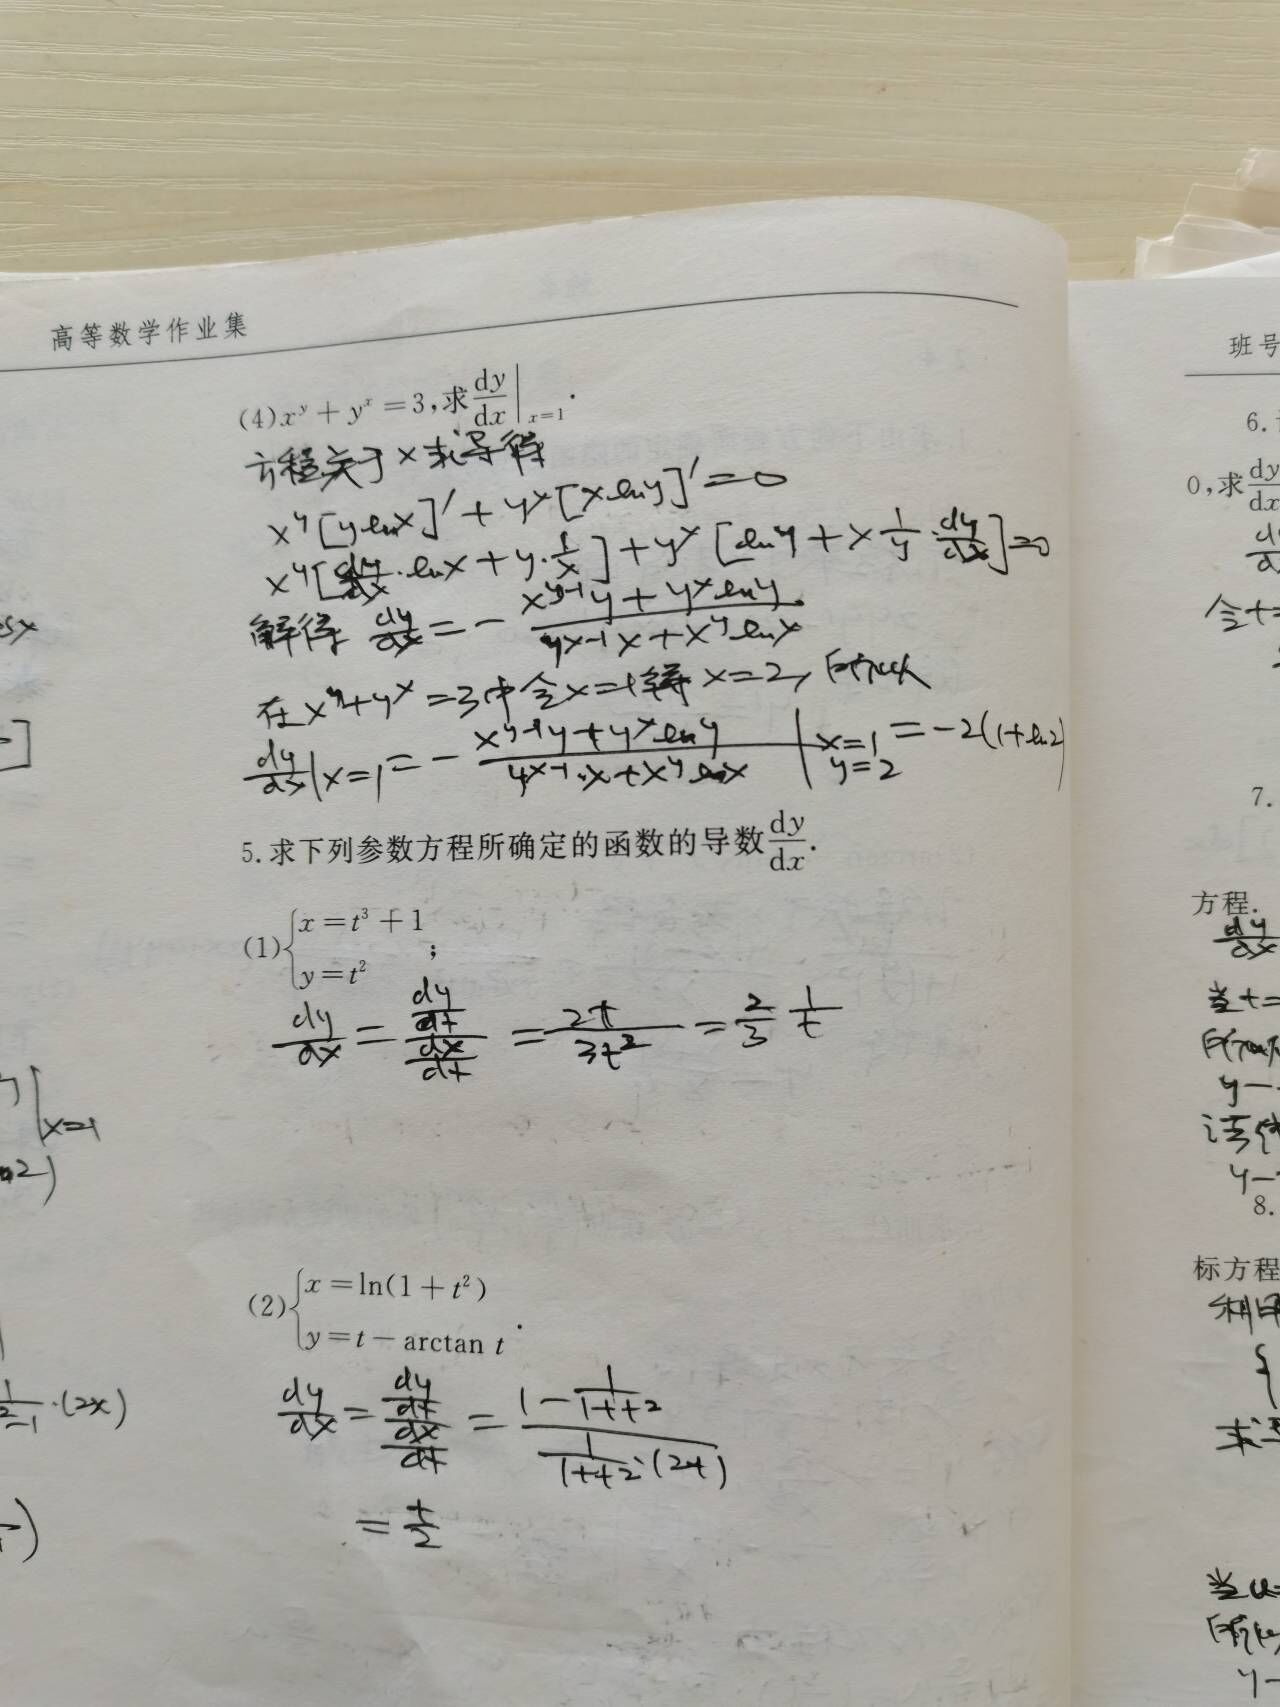 高等数学作业集
(4) x^y + y^x = 3, 求 dy/dx |_{x=1}.
方程关于x求导得
x^y[ylnx]' + y^x[xlny]' = 0
x^y[dy/dx·lnx + y·1/x] + y^x[lny + x 1/y·dy/dx] = 0
解得 dy/dx = - (x^{y-1}y + y^x lny)/(y^{x-1}x + x^y lnx)
在x^y+y^x=3中令x=1得x=2, 所以
dy/dx|x=1 = - (x^{y-1}y + y^x lny)/(y^{x-1}·x + x^y lnx) |_{x=1 y=2} = -2(1+ln2)
5.求下列参数方程所确定的函数的导数 dy/dx.
(1) { x = t^3 + 1
y = t^2 ;
dy/dx = (dy/dt)/(dx/dt) = 2t/3t^2 = 2/3 1/t
(2) { x = ln(1 + t^2)
y = t - arctan t .
dy/dx = (dy/dt)/(dx/dt) = (1 - 1/(1+t^2))/(1/(1+t^2)·(2t))
= t/2
x=1
·(2x)
班号
6.
0,求 dy/dx
令t=
7.
方程.
dy/dx
当t=
所以
y-
法线
y-
8.
标方程
利用
求导
当
所以
y-